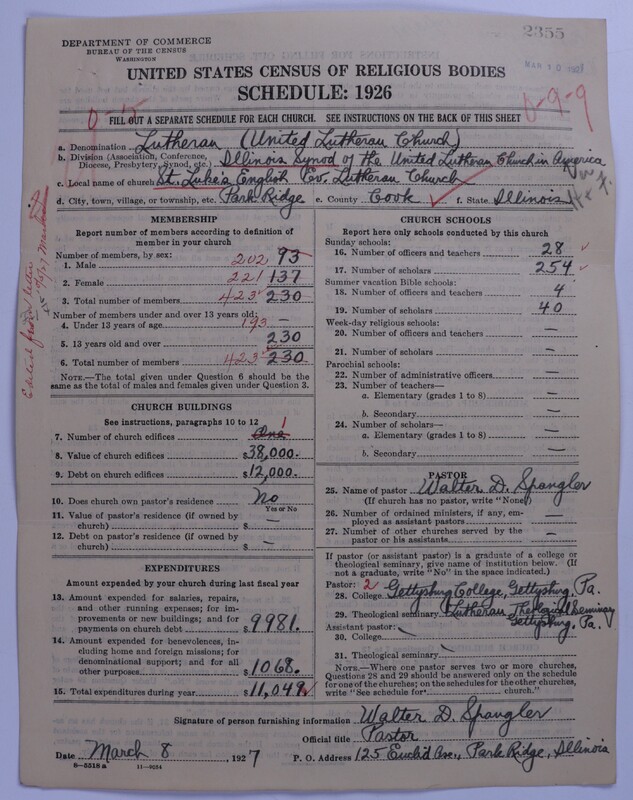 2355
DEPARTMENT OF COMMERCE
BUREAU OF THE CENSUS
WASHINGTON
MAR 10 1927
UNITED STATES CENSUS OF RELIGIOUS BODIES
SCHEDULE: 1926
0-15
0-9-9
FILL OUT A SEPARATE SCHEDULE FOR EACH CHURCH. SEE INSTRUCTIONS ON THE BACK OF THIS SHEET
a. Denomination Lutheran (United Lutheran Church)
b. Division (Association, Conference, Diocese, Presbytery, Synod, etc.) Illinois Synod of the United Lutheran Church in America
c. Local name of church St. Luke's English Ev. Lutheran Church
d. City, town, village, or township, etc. Park Ridge e. County Cook f. State Illinois
MEMBERSHIP
Report number of members according to definition of member in your church
Number of members, by sex:
1. Male 202 93
2. Female 221 137
3. Total number of members 423 230
Number of members under and over 13 years old:
4. Under 13 years of age 193 —
5. 13 years old and over 230
6. Total number of members 423 230
NOTE.—The total given under Question 6 should be the same as the total of males and females given under Question 3.
CHURCH BUILDINGS
See instructions, paragraphs 10 to 12
7. Number of church edifices One 1
8. Value of church edifices $38,000.
9. Debt on church edifices $12,000.
10. Does church own pastor's residence No
Yes or No
11. Value of pastor's residence (if owned by church) $ —
12. Debt on pastor's residence (if owned by church) $ —
EXPENDITURES
Amount expended by your church during last fiscal year
13. Amount expended for salaries, repairs, and other running expenses; for improvements or new buildings; and for payments on church debt $9981.
14. Amount expended for benevolences, including home and foreign missions; for denominational support; and for all other purposes $1068.
15. Total expenditures during year $11,049
CHURCH SCHOOLS
Report here only schools conducted by this church
Sunday schools:
16. Number of officers and teachers 28
17. Number of scholars 254
Summer vacation Bible schools:
18. Number of officers and teachers 4
19. Number of scholars 40
Week-day religious schools:
20. Number of officers and teachers —
21. Number of scholars —
Parochial schools:
22. Number of administrative officers —
23. Number of teachers—
a. Elementary (grades 1 to 8) —
b. Secondary —
24. Number of scholars—
a. Elementary (grades 1 to 8) —
b. Secondary —
PASTOR
25. Name of pastor Walter D. Spangler
(If church has no pastor, write "None")
26. Number of ordained ministers, if any, employed as assistant pastors —
27. Number of other churches served by the pastor or his assistants —
If pastor (or assistant pastor) is a graduate of a college or theological seminary, give name of institution below. (If not a graduate, write "No" in the space indicated.)
Pastor: 2
28. College Gettysburg College, Gettysburg, Pa.
29. Theological seminary Lutheran Theological Seminary Gettysburg, Pa.
Assistant pastor:
30. College
31. Theological seminary
NOTE.—Where one pastor serves two or more churches, Questions 28 and 29 should be answered only on the schedule for one of the churches; on the schedules for the other churches, write "See schedule for church."
Signature of person furnishing information Walter D. Spangler
Official title Pastor
Date March 8, 1927 P. O. Address 125 Euclid Ave., Park Ridge, Illinois
8-5318 a 11-9054